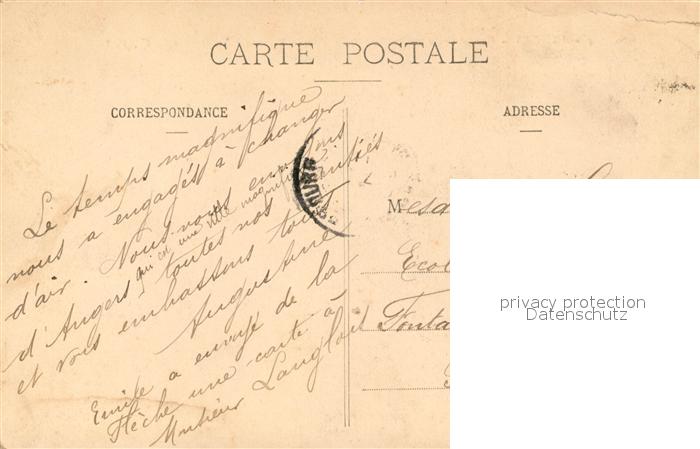 CARTE POSTALE
CORRESPONDANCE
Le temps magnifique
nous a engagés à changer
d'air. Nous vous envoyons
qui est une ville magnifique
d'Angers toutes nos amitiés
et vous embrassons tous
Augustine
Emile a envoyé de la
Flèche une carte à
Monsieur Langlois
ADRESSE
M
Ecol
Fonta
privacy protection
Datenschutz